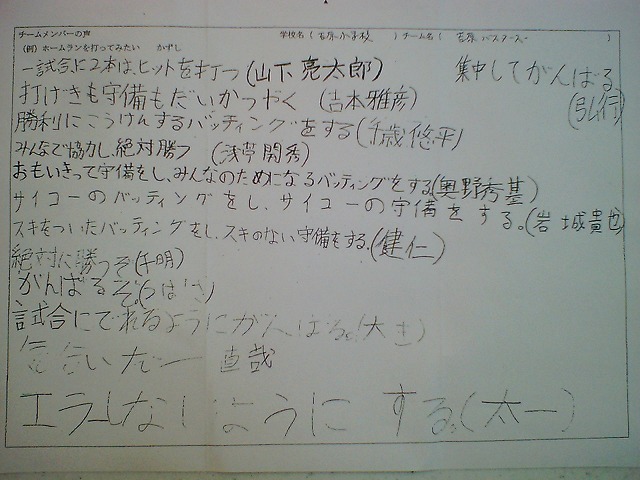 チームメンバーの声 学校名( 吉原小学校 ) チーム名( 吉原バスターズ )
(例)ホームランを打ってみたい かずし
一試合に2本は、ヒットを打つ(山下亮太郎) 集中してがんばる
打げきも守備もだいかつやく (吉本雅彦) (弘行)
勝利にこうけんするバッティングをする(千歳悠平)
みんなで協力し、絶対勝つ (浅夢閑秀)
おもいきって守備をし、みんなのためになるバッティングをする。(奥野秀基)
サイコーのバッティングをし、サイコーの守備をする。(岩城貴也)
スキをついたバッティングをし、スキのない守備をする。(健仁)
絶対に勝つぞ(千明)
がんばるぞ。(つばさ)
試合にでれるようにがんばる。(大き)
気合いだー 直哉
エラーしないようにする。(太一)